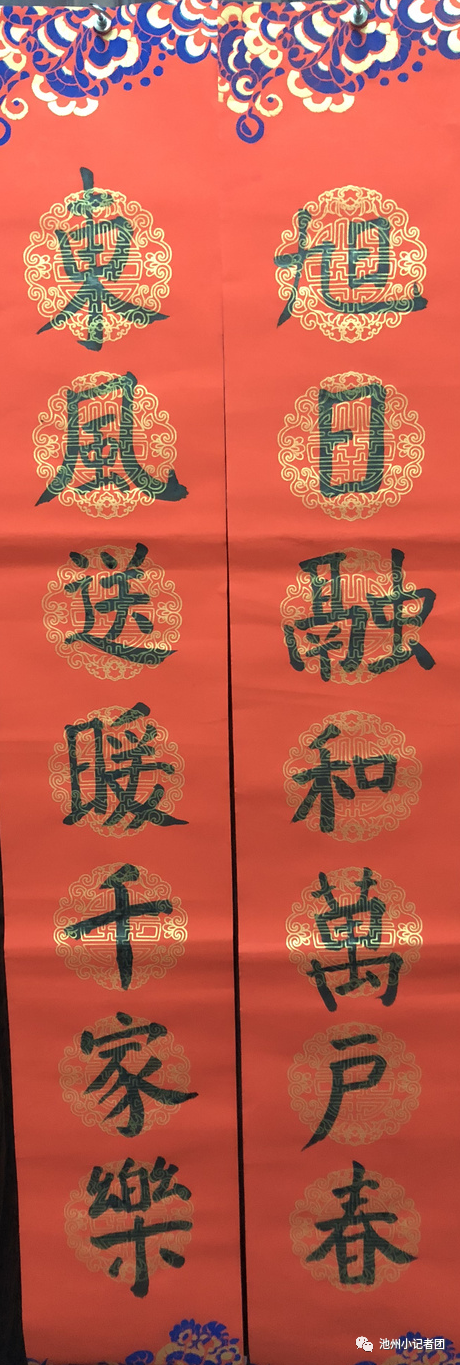 旭日融和萬戶春
東風送暖千家樂
池州小记者团